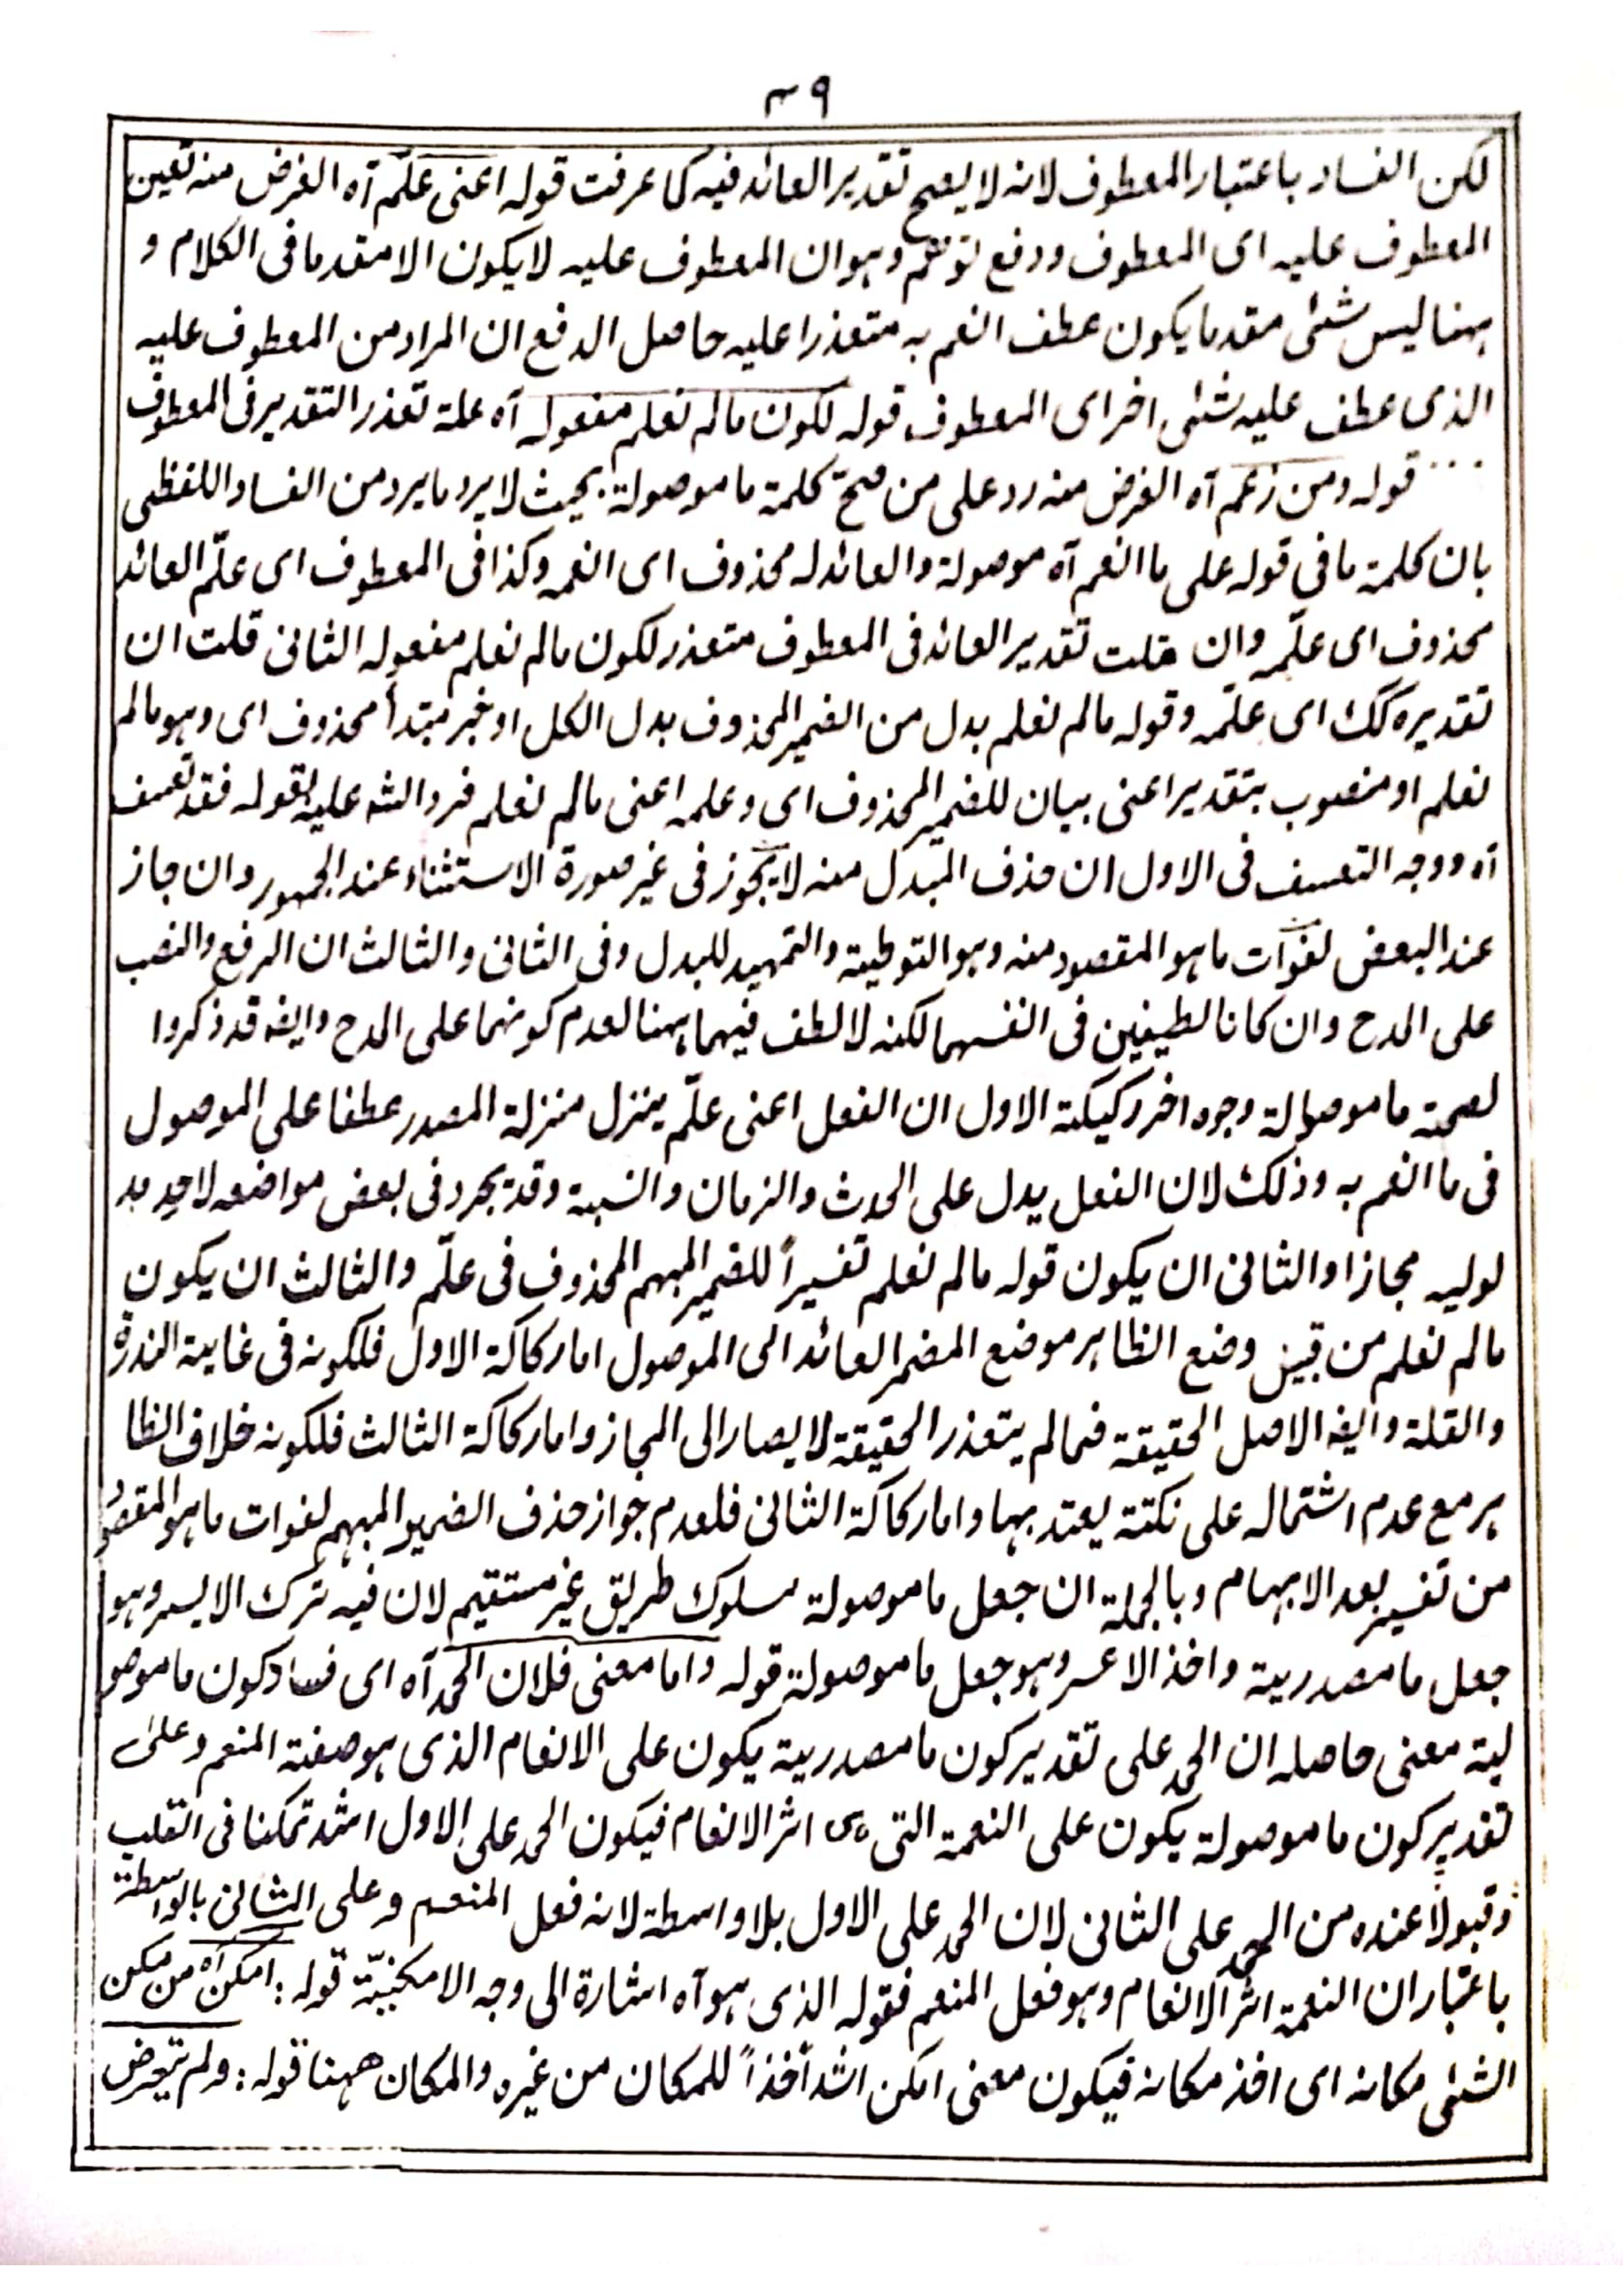 ٣٩
لكن الفساد باعتبار المعطوف لانه لا يصح تقدير العائد فيه كما عرفت قوله اعنى علّم آه الغرض منه تعين
المعطوف عليه اى المعطوف ودفع توهم وهو ان المعطوف عليه لا يكون الا متقدما فى الكلام و
ههنا ليس شئ مقدما يكون عطف انعم به متعذرا عليه حاصل الدفع ان المراد من المعطوف عليه
الذى عطف عليه شئ اخر اى المعطوف قوله لكون مالم نعلم مفعوله آه علة تعذر التقدير فى المعطوف
... قوله ومن زعم آه الغرض منه رد على من صحّ كلمة ما موصولة بحيث لا يرد ما يرد من الفساد اللفظى
بان كلمة ما فى قوله على ما انعم آه موصولة والعائد له محذوف اى انعمه وكذا فى المعطوف اى علّم العائد
محذوف اى علّمه وان قلت تقدير العائد فى المعطوف متعذر لكون مالم نعلم مفعوله الثانى قلت ان
تقديره كك اى علّمه وقوله مالم نعلم بدل من الضمير المحذوف بدل الكل او خبر مبتدأ محذوف اى وهو مالم
نعلم او منصوب بتقدير اعنى بيان للضمير المحذوف اى وعلمه اعنى مالم نعلم فرد الشه عليه بقوله فقد تعسف
آه ووجه التعسف فى الاول ان حذف المبدل منه لا يجوز فى غير صورة الاستثناء عند الجمهور وان جاز
عند البعض لفوات ما هو المقصود منه وهو التوطية والتمهيد للبدل وفى الثانى والثالث ان الرفع والنصب
على المدح وان كانا لطيفين فى انفسهما لكنه لا لطف فيهما ههنا لعدم كونهما على المدح وايضه قد ذكروا
لصحة ما موصولة وجوه اخر ركيكة الاول ان الفعل اعنى علّم ينزل منزلة المصدر عطفا على الموصول
فى ما انعم به وذلك لان الفعل يدل على الحدث والزمان والنسبة وقد يجرد فى بعض مواضعه لاحد مد
لوليه مجازا والثانى ان يكون قوله مالم نعلم تفسيراً للضمير المبهم المحذوف فى علّم والثالث ان يكون
مالم نعلم من قبيل وضع الظاهر موضع المضمر العائد الى الموصول اما ركاكة الاول فلكونه فى غاية الندرة
والقلة وايضه الاصل الحقيقة فمالم يتعذر الحقيقة لا يصار الى المجاز واما ركاكة الثالث فلكونه خلاف الظا
هر مع عدم اشتماله على نكتة يعتد بها واما ركاكة الثانى فلعدم جواز حذف الضمير المبهم لفوات ما هو المقصو
من تفسير بعد الابهام وبالجملة ان جعل ما موصولة سلوك طريق غير مستقيم لان فيه ترك الايسر وهو
جعل ما مصدرية واخذ الاعسر وهو جعل ما موصولة قوله واما معنى فلان الحمد آه اى فساد كون ما موصو
لية معنى حاصله ان الحمد على تقدير كون ما مصدرية يكون على الانعام الذى هو صفة المنعم وعلى
تقدير كون ما موصولة يكون على النعمة التى هى اثر الانعام فيكون الحمد على الاول اشد تمكنا فى القلب
وقبولاً عنده من الحمد على الثانى لان الحمد على الاول بلا واسطة لانه فعل المنعم وعلى الثانى بالواسطة
باعتبار ان النعمة اثر الانعام وهو فعل المنعم فقوله الذى هو آه اشارة الى وجه الامكنيّة قوله : امكن آه من مكن
الشئ مكانه اى اخذ مكانه فيكون معنى امكن اشد أخذاً للمكان من غيره والمكان ههنا قوله : ولم يتعرض